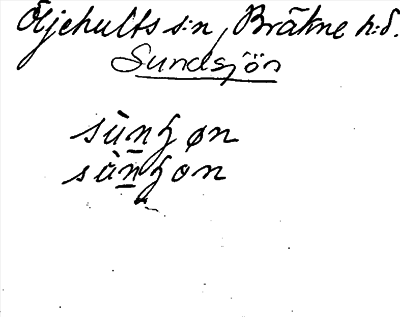 Öljehults s:n, Bräkne h:d.
Sundsjön
sùnʒøn
sànʒon